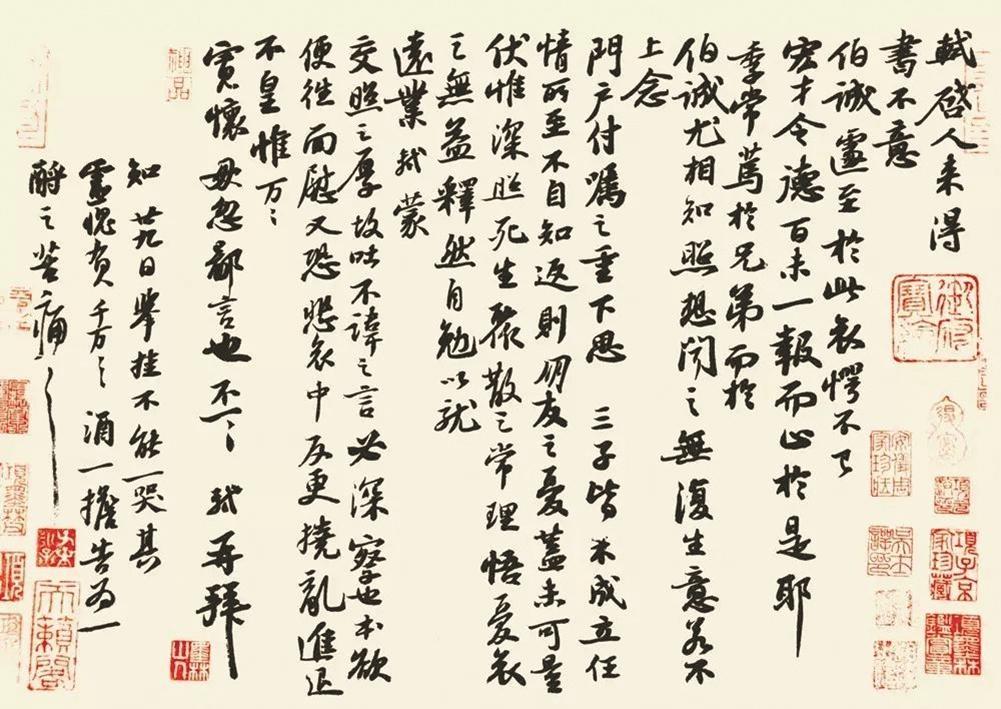 軾啓人来得
書不意
伯誠遽至於此哀愕不已
宏才令德百未一報而止於是耶
季常篤於兄弟而於
伯誠尤相知照想聞之無復生意若不
上念
門户付嘱之重下思三子皆未成立任
情所至不自知返則朋友之憂蓋未可量
伏惟深照死生聚散之常理悟憂哀
之無益釋然自勉以就
遠業軾蒙
交照之厚故吐不諱之言必深察也本欲
便往面慰又恐悲哀中反更撓亂進退
不皇惟万〻
寛懷毋忽鄙言也不一〻軾再拜
知廿九日舉挂不能一哭其
靈愧負千万〻酒一擔告为一
酹之苦痛〻
御府寶繪
項子京家珍藏
項墨林鑑賞章
天籟閣